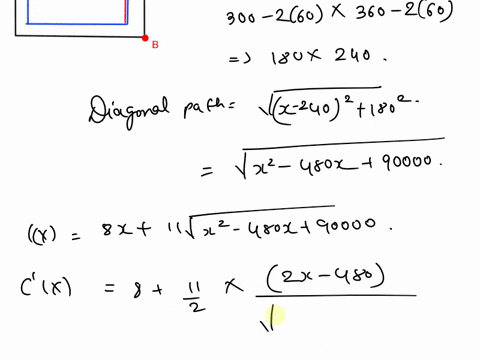 300 - 2(60) × 360 - 2(60)
B
=> 180 × 240.
Diagonal path = √((x-240)² + 180².
= √(x² - 480x + 90000.
C(x) = 8x + 11√(x² - 480x + 90000.
C'(x) = 8 + 11/2 × (2x - 480)/√